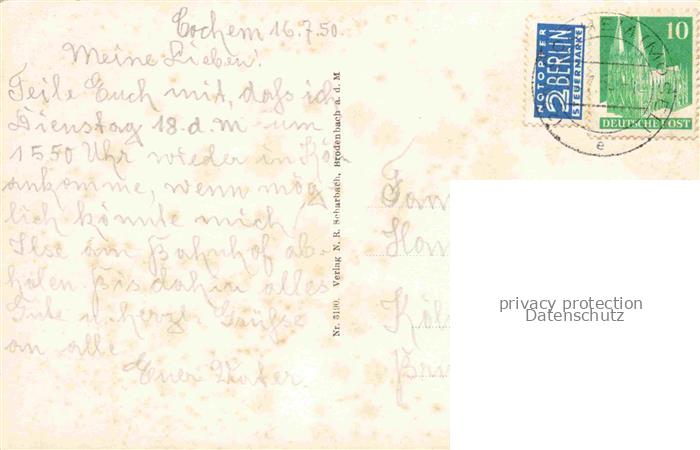 Cochem 16.7.50.
Meine Lieben!
Teile Euch mit, dass ich
Dienstag 18.d.M um
1550 Uhr wieder in Köln
ankomme, wenn mög
lich könnte mich
Ilse am Bahnhof ab-
holen Bis dahin alles
Gute u. herzl. Grüsse
an alle
Euer Vater
Nr. 5100. Verlag N. R. Scharbach, Brodenbach a. d. M
NOTOPFER
2 BERLIN
STEUERMARKE
10
DEUTSCHE POST
MOSEL
e
Fam
Köl
privacy protection
Datenschutz